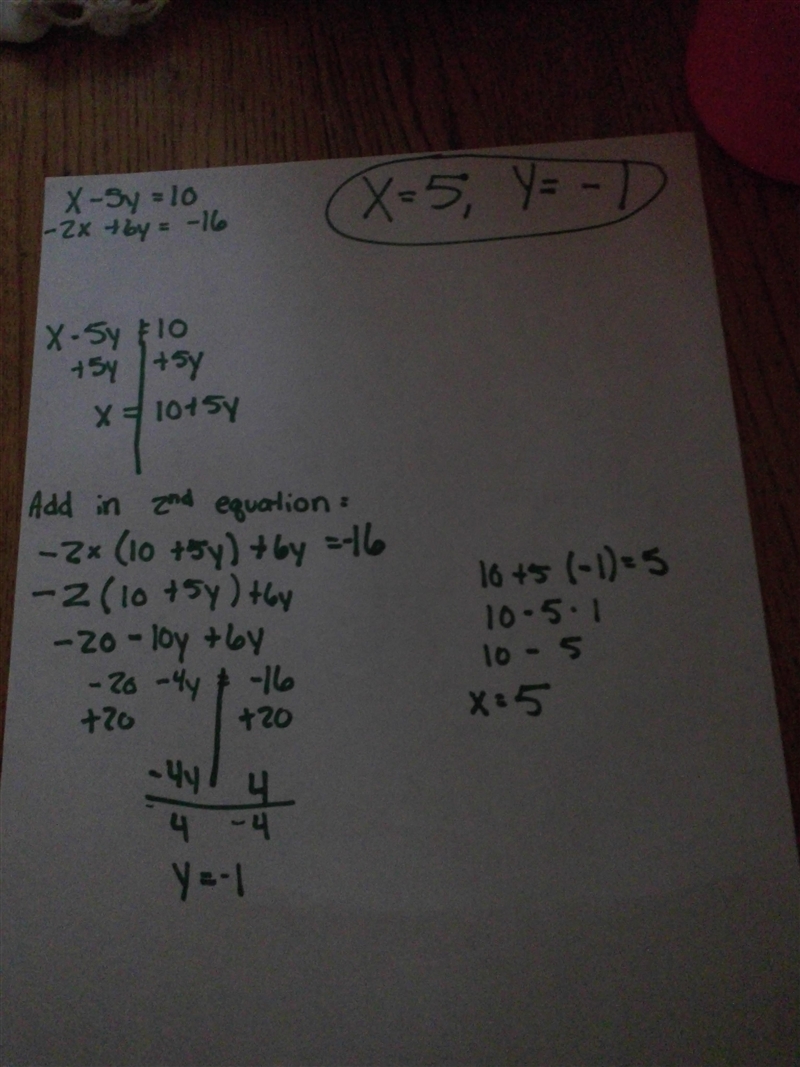 x - 5y = 10
-2x + 6y = -16
x = 5, y = -1
x - 5y = 10
+5y +5y
x = 10+5y
Add in 2nd equation:
-2x (10 + 5y) + 6y = -16
-2 (10 + 5y) + 6y
-20 - 10y + 6y
-20 -4y = -16
+20 +20
-4y 4
-4 -4
y = -1
10 + 5 (-1) = 5
10 - 5 · 1
10 - 5
x = 5